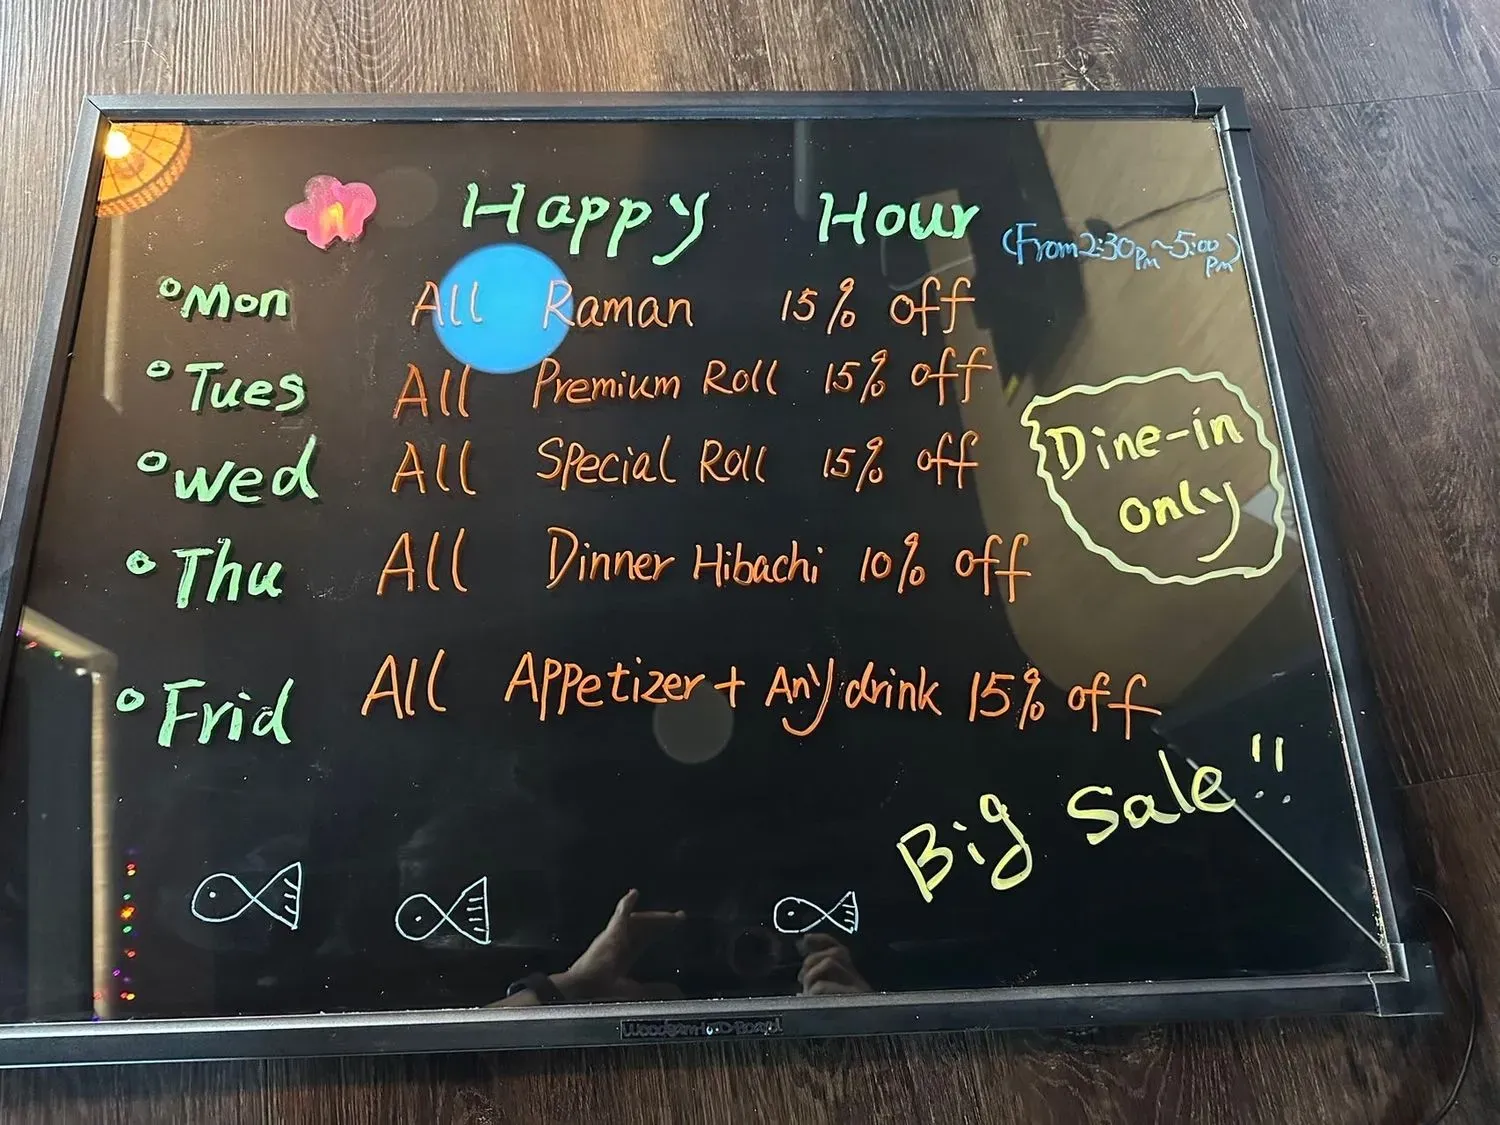 Happy Hour (From 2:30pm~5:00pm)
Mon All Raman 15% off
Tues All Premium Roll 15% off
Wed All Special Roll 15% off
Thu All Dinner Hibachi 10% off
Frid All Appetizer + Any drink 15% off
Dine-in
only
Big Sale!!